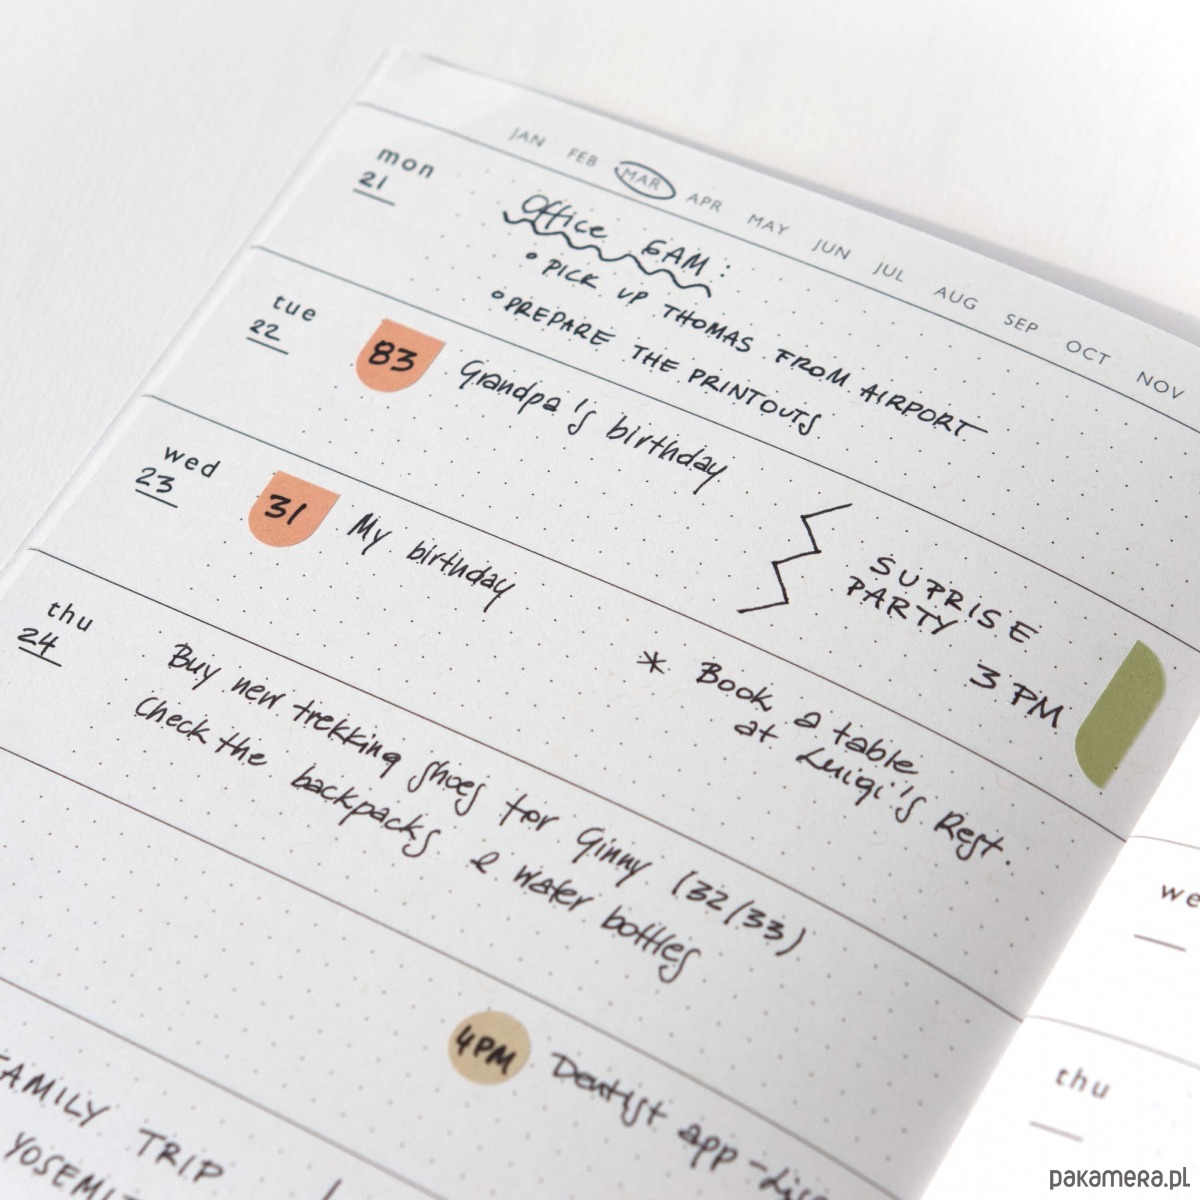 JAN FEB MAR APR MAY JUN JUL AUG SEP OCT NOV
mon
21
Office 6AM:
• PICK UP THOMAS FROM AIRPORT
• PREPARE THE PRINTOUTS
tue
22
83
Grandpa's birthday
SUPRISE
PARTY
3 PM
wed
23
31
My birthday
* Book a table
at Luigi's Rest.
thu
24
Buy new trekking shoes for Ginny (32/33)
Check the backpacks & water bottles
4PM
Dentist app-
FAMILY TRIP
we
thu
pakamera.pl